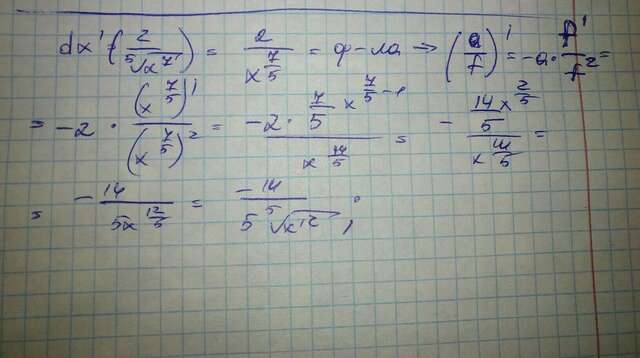 dx' = (2/⁵√x⁷)' = 2/x^(7/5) = ф-ла → (a/f)' = -a · f'/f² =
= -2 · (x^(7/5))'/(x^(7/5))² = -2 · 7/5 x^(7/5 - 1)/x^(14/5) = - 14/5 x^(2/5)/x^(14/5) =
= -14/5x^(12/5) = -14/5 ⁵√x¹² ;